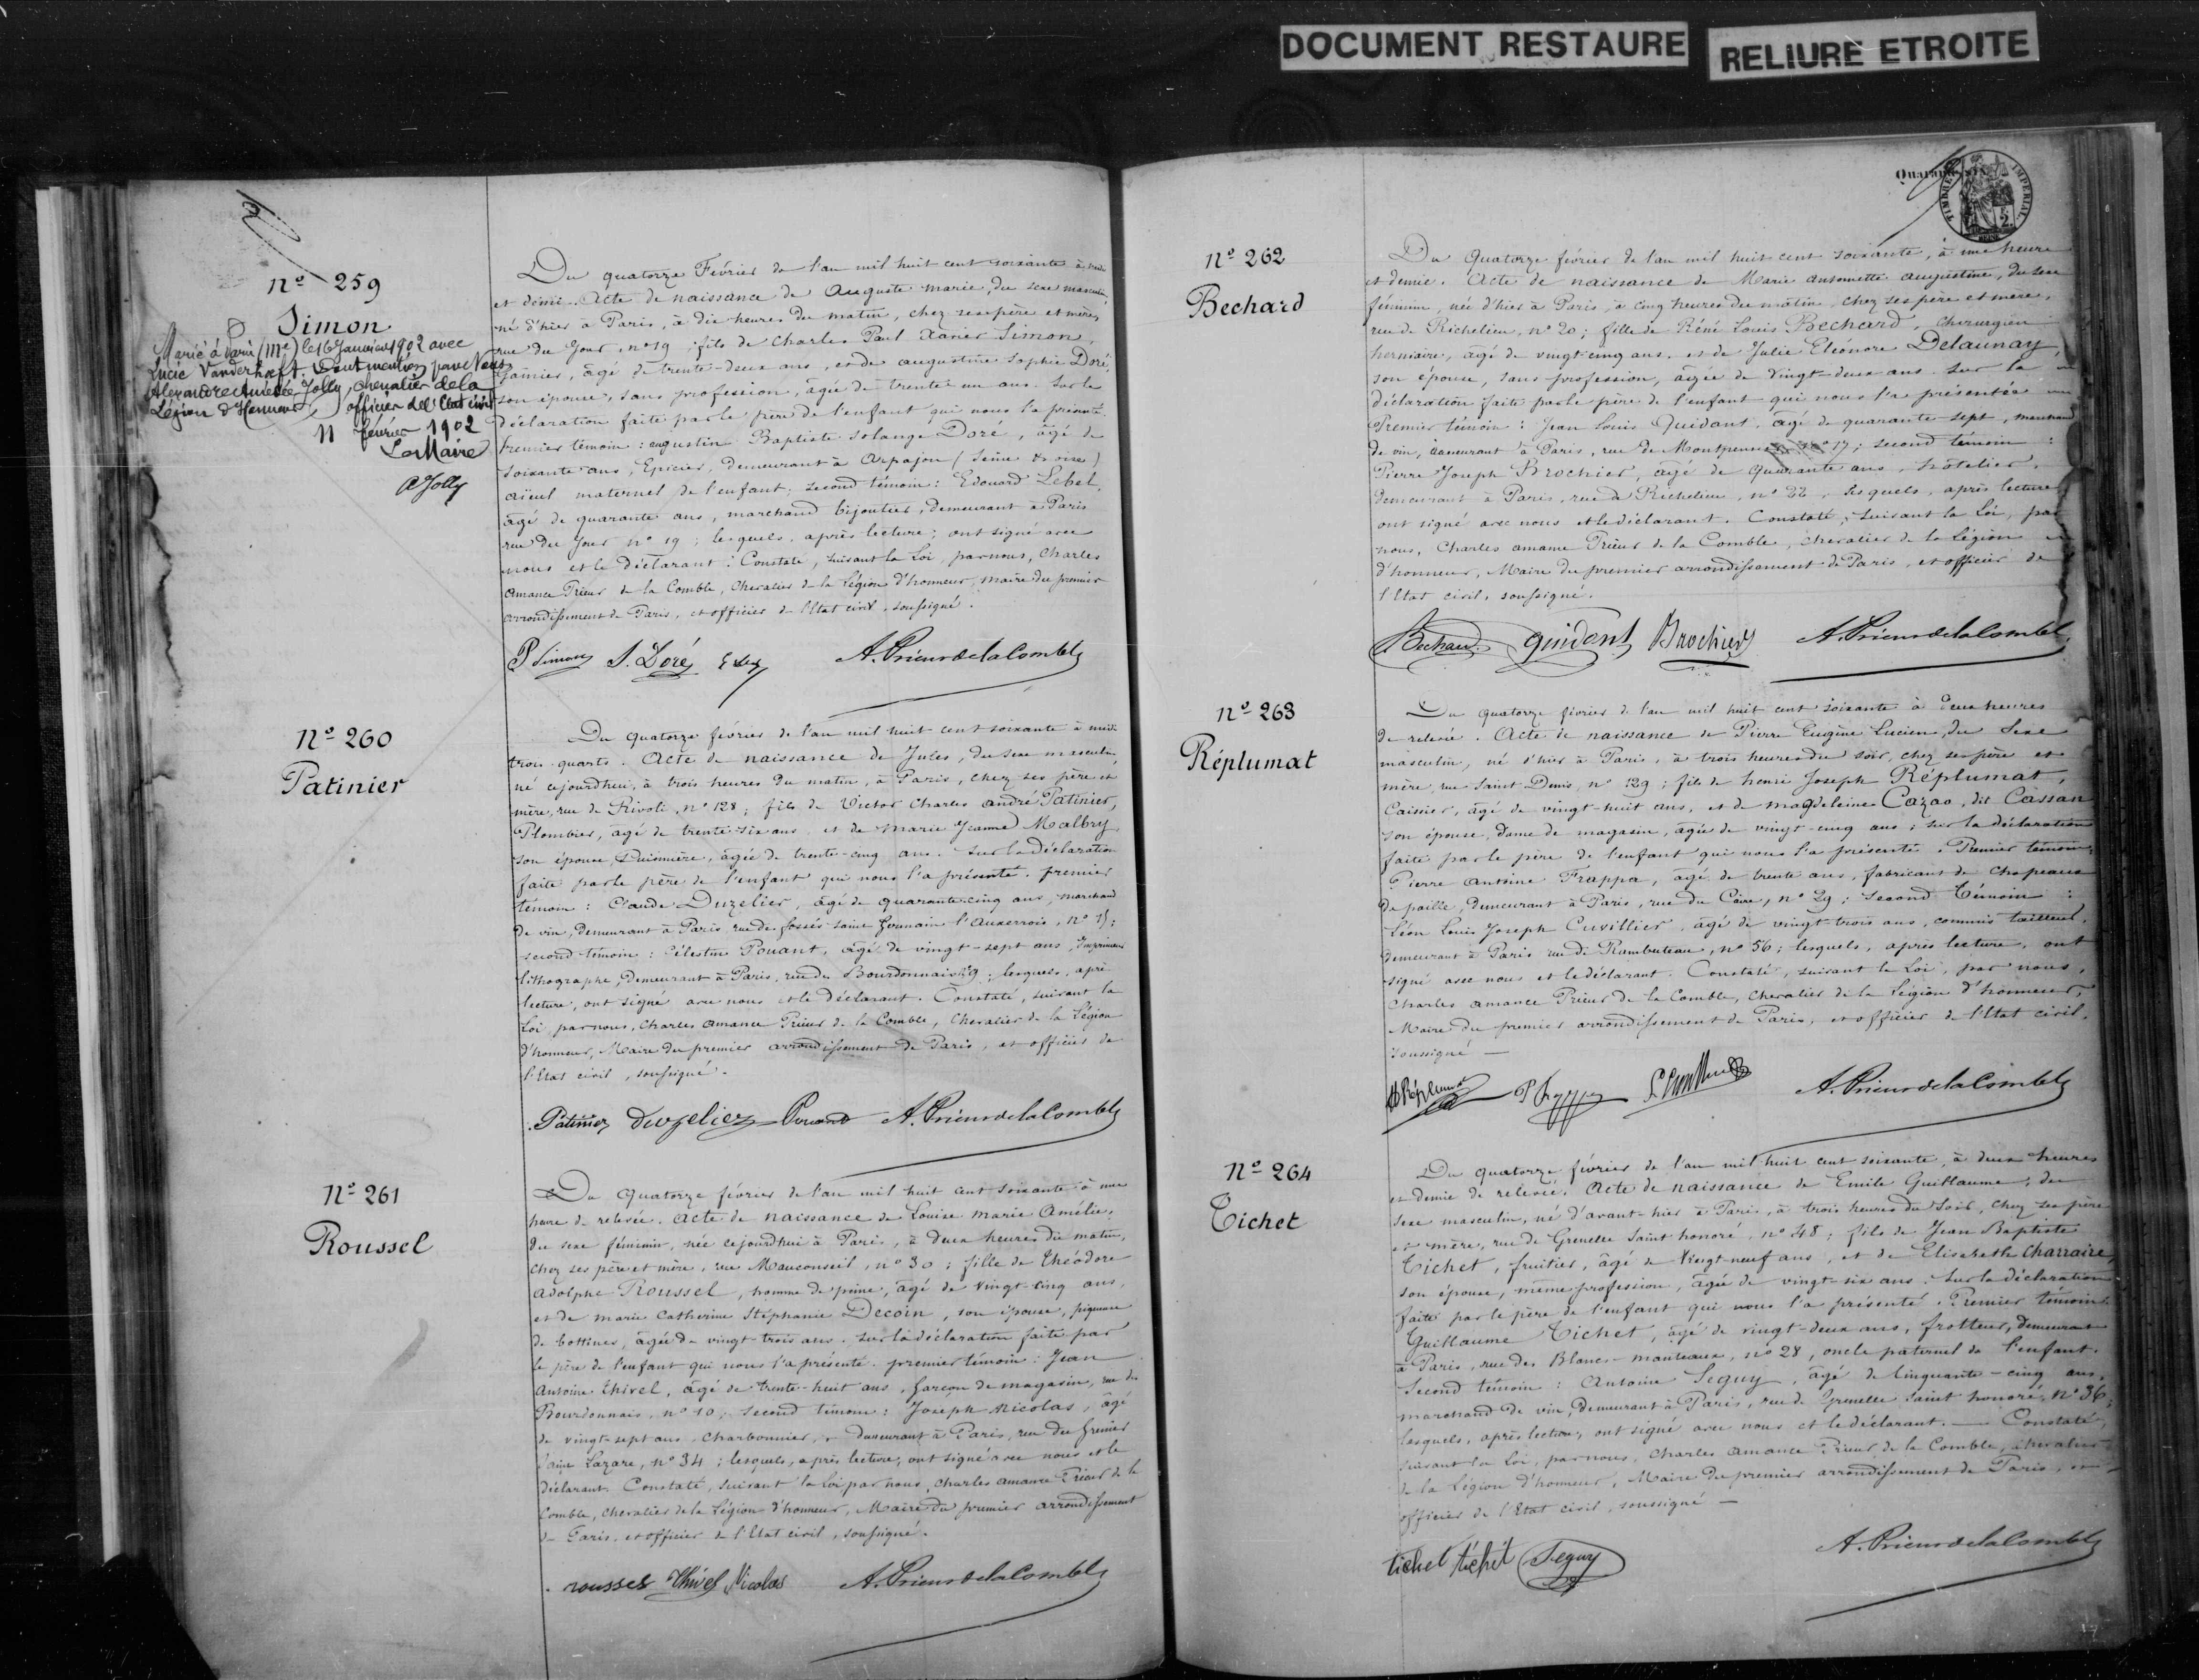 DOCUMENT RESTAURE
RELIURE ETROITE
nº 259
Simon
Marié à Paris (IIIe) le 16 Janvier 1902 avec
Lucie Vanderhoeft. Dont mention par Nous
Alexandre Amédée Jolly, chevalier de la
Légion d'Honneur, officier de l'Etat civil
11 février 1902
Le Maire
A Jolly
Du quatorze Février de l'an mil huit cent soixante à midi
et demie. Acte de naissance de Auguste Marie, du sexe masculin,
né d'hier à Paris, à dix heures du matin, chez ses père et mère,
rue du Jour, nº 19; fils de Charles Paul Xavier Simon,
Gainier, âgé de trente-deux ans, et de augustine Sophie Doré,
son épouse, sans profession, âgée de trente un ans. Sur la
déclaration faite par le père de l'enfant qui nous l'a présenté.
Premier témoin: augustin Baptiste Solange Doré, âgé de
soixante ans, Epicier, demeurant à Arpajon (Seine & oise)
aïeul maternel de l'enfant; second témoin: Edouard Lebel,
âgé de quarante ans, marchand bijoutier, demeurant à Paris
rue du Jour nº 19; lesquels, après lecture, ont signé avec
nous et le déclarant. Constaté, suivant la Loi, par nous, Charles
Amance Prieur de la Comble, Chevalier de la Légion d'honneur, maire du premier
arrondissement de Paris, et officier de l'Etat civil, soussigné.
P Simon S. Doré A. Prieur de la Comble
Nº 260
Patinier
Du quatorze février de l'an mil huit cent soixante à midi
trois quarts. Acte de naissance de Jules, du sexe masculin,
né cejourdhui, à trois heures du matin, à Paris, chez ses père et
mère, rue de Rivoli, nº 128; fils de Victor Charles André Patinier,
Plombier, agé de trente-six ans et de Marie Jeanne Malbry
son épouse, Cuisinière, agée de trente-cinq ans. Sur la déclaration
faite par le père de l'enfant qui nous l'a présenté. premier
témoin: Claude Duzelier, âgé de quarante-cinq ans, marchand
de vin, demeurant à Paris rue des fossés saint Germain l'Auxerrois, nº 15;
second témoin: Célestin Pouant, âgé de vingt-sept ans, Imprimeur
lithographe, demeurant à Paris, rue des Bourdonnais nº 9; lesquels, après
lecture, ont signé avec nous et le déclarant. Constaté, suivant la
Loi par nous, Charles Amance Prieur de la Comble, Chevalier de la Légion
d'honneur, Maire du premier arrondissement de Paris, et officier de
l'Etat civil, soussigné.
Patinier Duzelier Pouant A. Prieur de la Comble
Nº 261
Roussel
Du quatorze février de l'an mil huit cent soixante à une
heure de relevée. Acte de naissance de Louise Marie Amélie,
du sexe féminin, née cejourdhui à Paris, à deux heures du matin,
chez ses père et mère, rue Mauconseil, nº 30; fille de Théodore
Adolphe Roussel, homme de peine, âgé de vingt-cinq ans,
et de marie Catherine Stéphanie Decoin, son épouse, piqueuse
de bottines, âgée de vingt-trois ans. sur la déclaration faite par
le père de l'enfant qui nous l'a présenté. premier témoin: Jean
Antoine Thivel, âgé de trente-huit ans, garçon de magasin, rue des
Bourdonnais, nº 10; second témoin: Joseph Nicolas, âgé
de vingt-sept ans, charbonnier, demeurant à Paris, rue du Grenier
Saint Lazare, nº 34; lesquels, après lecture, ont signé avec nous et le
déclarant. Constaté, suivant la loi par nous, Charles Amance Prieur de la
Comble, Chevalier de la Légion d'honneur, Maire du premier arrondissement
de Paris, et officier de l'Etat civil, soussigné.
roussel Thivel Nicolas A. Prieur de la Comble
TIMBRE IMPERIAL
2
Nº 262
Bechard
Du Quatorze février de l'an mil huit cent soixante, à une heure
et demie. Acte de naissance de Marie Antoinette Augustine, du sexe
féminin, née d'hier à Paris, à cinq heures du matin, chez ses père et mère,
rue de Richelieu, nº 20; fille de Réné Louis Bechard, chirurgien
herniaire, âgé de vingt-cinq ans, et de Julie Eléonore Delaunay,
son épouse, sans profession, âgée de vingt-deux ans. Sur la
déclaration faite par le père de l'enfant qui nous l'a présentée
Premier témoin: Jean Louis Guidant, âgé de quarante sept, marchand
de vin, demeurant à Paris, rue de Montpensier nº 17; second témoin:
Pierre Joseph Brochier, âgé de quarante ans, hôtelier,
demeurant à Paris, rue de Richelieu, nº 22, lesquels, après lecture,
ont signé avec nous et le déclarant. Constaté, suivant la Loi, par
nous, Charles amance Prieur de la Comble, chevalier de la Légion
d'honneur, Maire du premier arrondissement de Paris, et officier de
l'Etat civil, soussigné.
Bechard Guidant Brochier A. Prieur de la Comble
Nº 263
Réplumat
Du quatorze février de l'an mil huit cent soixante à deux heures
de relevée. Acte de naissance de Pierre Eugène Lucien, du Sexe
masculin, né d'hier à Paris, à trois heures du soir, chez ses père et
mère, rue Saint Denis, nº 129; fils de henri Joseph Réplumat,
Caissier, âgé de vingt-huit ans, et de magdeleine Cazao, dit Cassan
son épouse, Dame de magasin, agée de vingt-cinq ans; sur la déclaration
faite par le père de l'enfant qui nous l'a présenté. Premier témoin:
Pierre Antoine Frappa, âgé de trente ans, fabricant de chapeaux
de paille, demeurant à Paris, rue du Caire, nº 29; second témoin:
Léon Louis Joseph Cuvillier, âgé de vingt-trois ans, commis tailleur,
demeurant à Paris rue de Rambuteau, nº 56; lesquels, après lecture, ont
signé avec nous et le déclarant. Constaté, suivant la Loi, par nous,
Charles amance Prieur de la Comble, Chevalier de la Légion d'honneur,
Maire du premier arrondissement de Paris, et officier de l'Etat civil,
soussigné —
A. Prieur de la Comble
Nº 264
Tichet
Du quatorze février de l'an mil huit cent soixante, à deux heures
et demie de relevée. Acte de naissance de Emile Guillaume, du
sexe masculin, né d'avant-hier à Paris, à trois heures du Soir, chez ses père
et mère, rue de Grenelle Saint honoré, nº 48; fils de Jean Baptiste
Tichet, fruitier, âgé de Vingt-neuf ans, et de Elisabeth Charraire,
son épouse, même profession, âgée de vingt-six ans. Sur la déclaration
faite par le père de l'enfant qui nous l'a présenté. Premier témoin
Guillaume Tichet, âgé de vingt-deux ans, frotteur, demeurant
à Paris, rue des Blancs-manteaux, nº 28, oncle paternel de l'enfant.
Second témoin: Antoine Seguy, âgé de Cinquante-cinq ans,
marchand de vin, demeurant à Paris, rue de Grenelle Saint honoré, Nº 36;
lesquels, après lecture, ont signé avec nous et le déclarant. — Constaté,
suivant la Loi, par nous, Charles Amance Prieur de la Comble, chevalier
de la Légion d'honneur, Maire du premier arrondissement de Paris, et
officier de l'Etat civil, soussigné —
tichet tichet Seguy A. Prieur de la Comble